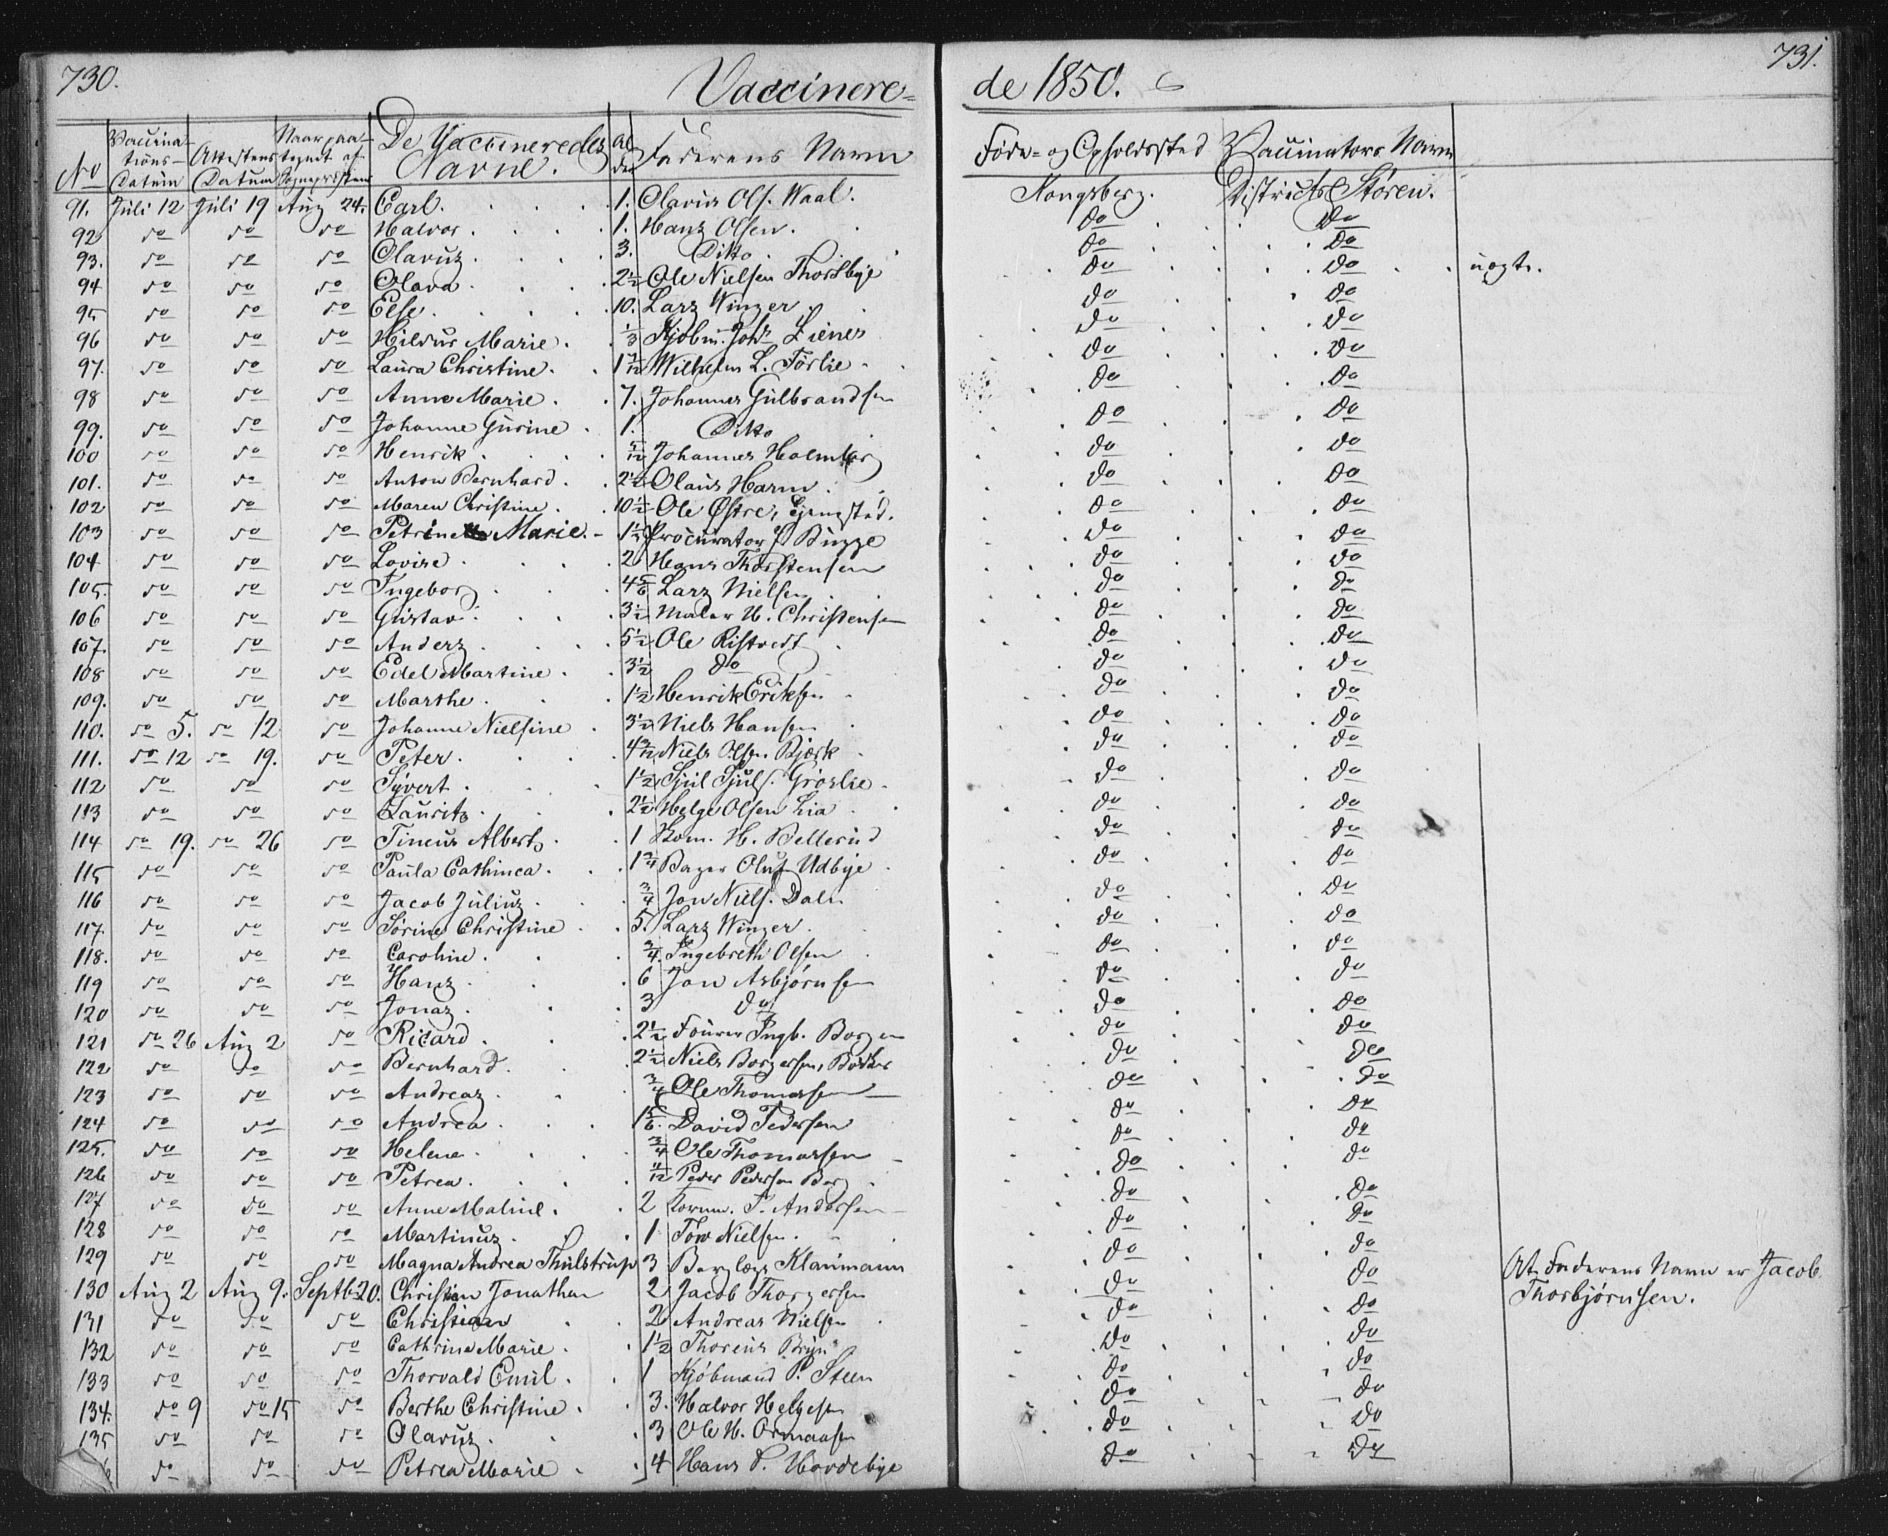 730.
Vaccinere-
de 1850.
731.
No
Vaccinations-Datum
Attestens Datum
Naar paategnet af Sognepræsten
De Vaccineredes Navne.
Alder
Faderens Navn
Føde- og Opholdssted
Vaccinators Navn
91. Juli 12 Juli 19 Aug 24. Carl. 1. Olavus Ols. Waal. Kongsberg. Districtsl. Støren.
92 do do do Halvor 1. Hans Olsen. do do
93. do do do Olavus 3. Ditto do do
94 do do do Olava 2½ Ole Nielsen Thorsbye do do uægte.
95 do do do Else 10. Lars Winger do do
96 do do do Hildur Marie 1/3 Kjøbm. Joh. Lienes do do
97. do do do Laura Christine 1 Wilhelm L. Førlie do do
98 do do do Anne Marie 7. Johannes Gulbrandsen do do
99. do do do Johanne Gurine 1. Ditto do do
100 do do do Henrik Johannes Holmberg do do
101. do do do Anton Bernhard 2½ Olaus Harm do do
102 do do do Maren Christine 10½ Ole Østre, do do
103 do do do Petrine Marie 1½ Procurator J Bugge do do
104 do do do Lovise 2 Hans Thorstensen do do
105. do do do Ingeborg 4 5/6 Lars Nielsen do do
106 do do do Gustav 3½ Maler H. Christensen do do
107. do do do Anders 5½ Ole Ristvedt do do
108 do do do Edel Martine 3½ do do do
109. do do do Marthe 1½ Henrik Eriksen do do
110. do 5. do 12 do Johanne Nielsine 3½ Niels Hansen do do
111. do 12 do 19. do Peter 4 Niels Olsen Bjerk do do
112 do do do Syvert 1½ Gjul Gjuls. Grøslie do do
113 do do do Lauritz 2½ Helge Olsen Lia do do
114 do 19. do 26 do Tineus Albert 1 H. Bellerud do do
115 do do do Paula Cathinca 1 3/4 Bager Oluf Udbye do do
116 do do do Jacob Julius 3/4 Jon Niels. Dale do do
117. do do do Sørine Christine 5. Lars Winger do do
118. do do do Caroline 3/4 Ingebreth Olsen do do
119 do do do Hans 6 Jon Asbjørnsen do do
120 do do do Jonas 3 do do do
121 do 26 Aug 2 do Ricard 2½ Fourer Ingb. Borgen do do
122 do do do Bernhard 2½ Niels Borgersen, Bødker do do
123 do do do Andreas 3/4 Ole Thomassen do do
124 do do do Andrea 1 5/6 David Pedersen do do
125. do do do Helene 3/4 Ole Thomassen do do
126 do do do Petrea Peder Pedersen Berg do do
127 do do do Anne Maline 2 P. Andersen do do
128 do do do Martinus 1 Tov Nielsen do do
129 do do do Magna Andrea Thulstrup 3 Berglæge Klaumann do do
130 Aug 2 Aug 9. Septb 20. Christian Jonathan 2 Jacob Thorgersen do do At Faderens Navn er Jacob
Thorbjørnsen.
131 do do do Christian 2 Andreas Nielsen do do
132 do do do Cathrine Marie 1½ Thorens Bryn do do
133 do do do Thorvald Emil 1 Kjøbmand P. Steen do do
134. do 9 do 15 do Berthe Christine 3. Halvor Helgesen do do
135 do do do Olavus 3 Ole H. Ormaasen do do
6 do do do Petrea Marie 4 Hans P. Hovdebye do do